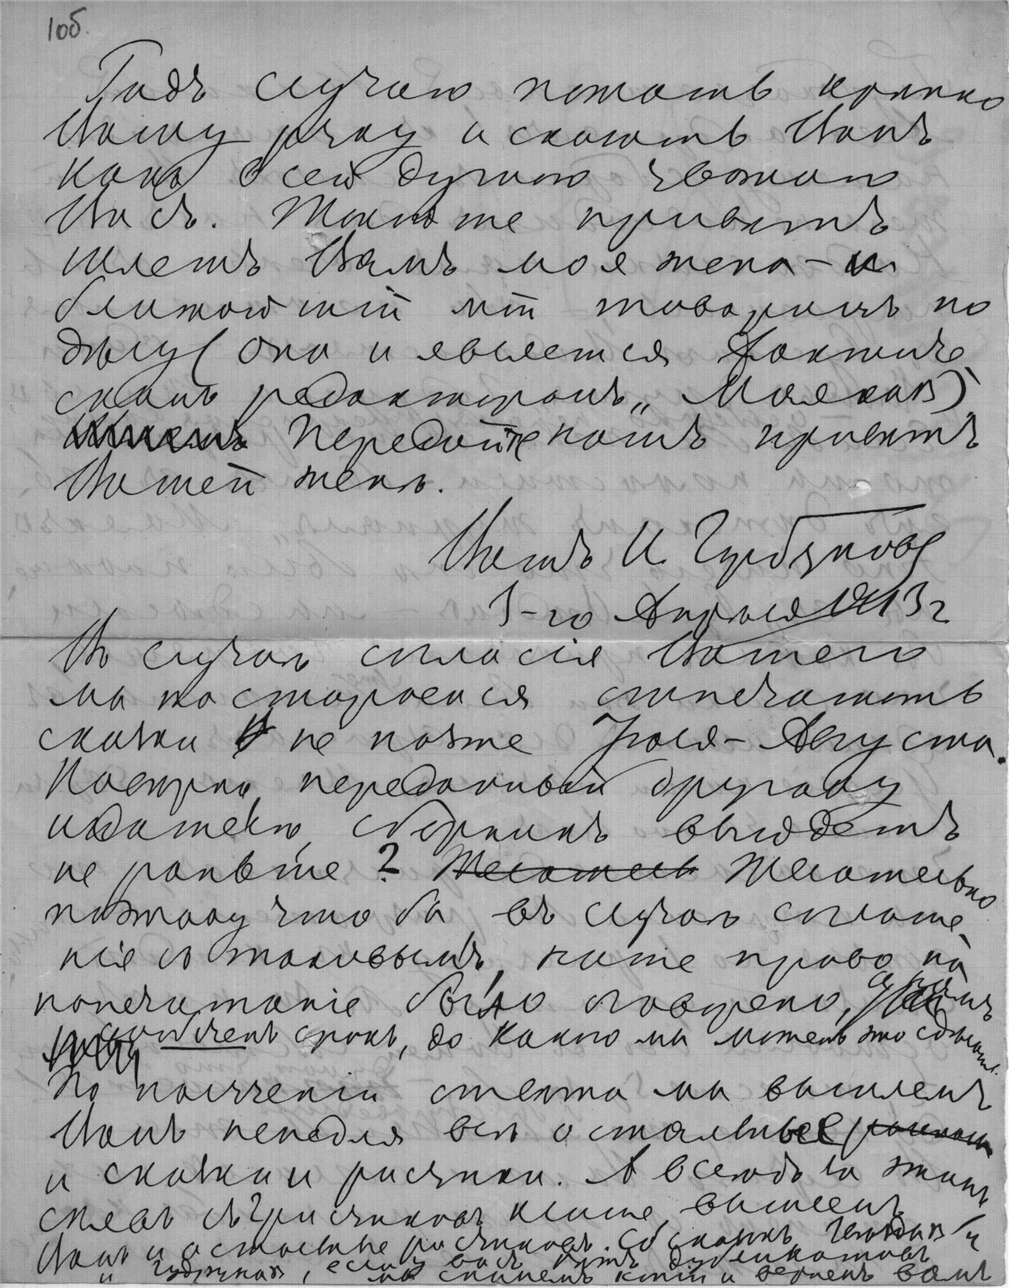 10б.
Радъ случаю пожать крепко
Вашу руку и сказать Вамъ
какъ я всей душою уважаю
Васъ. Также привѣтъ
шлетъ Вамъ моя жена – и
ближайшій мнѣ товарищъ по
дѣлу (она и является фактиче
скимъ редакторомъ „Маяка")
Передайте нашъ привѣтъ
Вашей женѣ.
Вашъ И. Горбуновъ
1-го Апрѣля 1913 г
Въ случаѣ согласія Вашего
мы постараемся отпечатать
сказки не позже Іюля – Августа.
Навѣрно, переданный другому
издателю, сборникъ выйдетъ
не раньше? Желательно
поэтому что бы, въ случаѣ соглаше
нія съ таковымъ, наше право на
печатаніе было оговорено,
срокъ, до какого мы можемъ это сдѣлать.
По полученіи отвѣта мы вышлемъ
Вамъ немедля всѣ остальные
и сказки и рисунки. А всего за этимъ
снявъ съ рисунковъ клише, вышлемъ
Вамъ и остальные рисунковъ. Со сказки
если у васъ нѣтъ дубликатовъ
мы снимемъ копіи и вернемъ вамъ